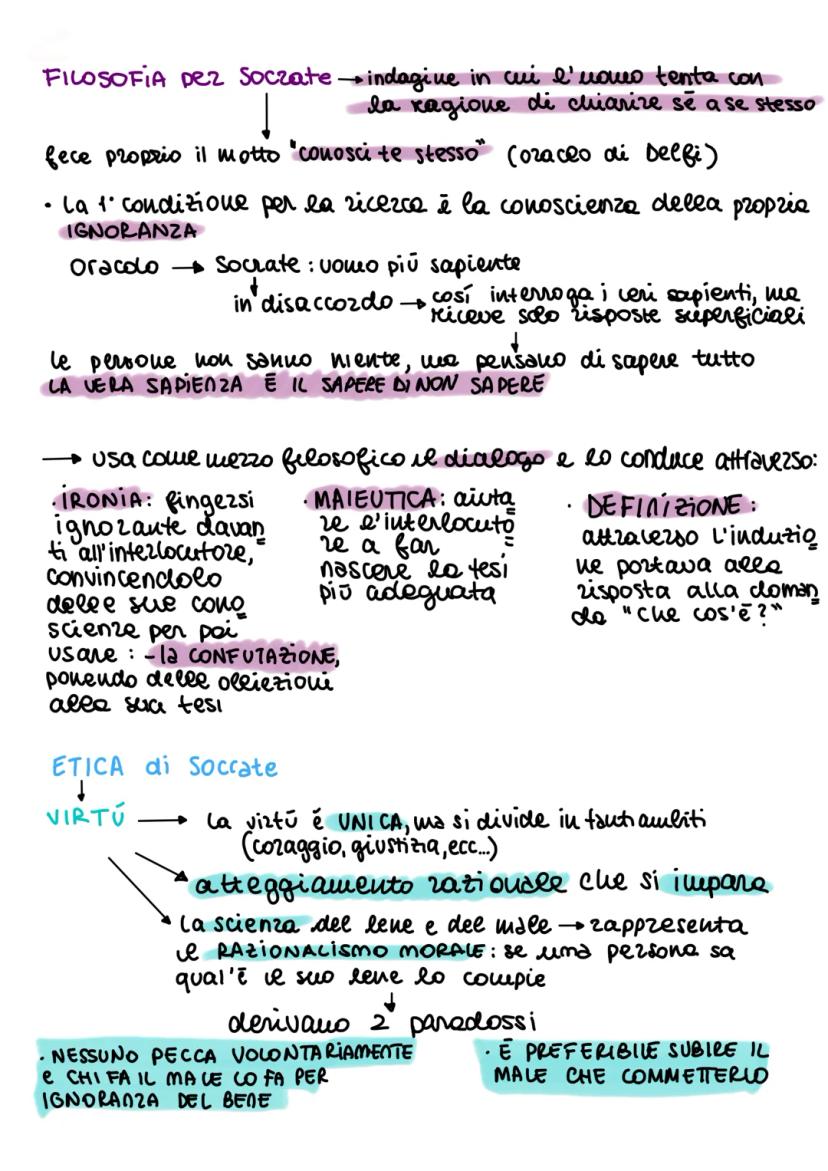 FILOSOFIA PER SOCRATE → indagine in cui l'uomo tenta con
la ragione di chiarire sé a se stesso
fece proprio il motto "conosci te stesso" (oracolo di Delfi)
· La 1° condizione per la ricerca è la conoscienza della propria
IGNORANZA
Oracolo → Socrate : uomo più sapiente
in disaccordo → così interroga i veri sapienti, ma
riceve solo risposte superficiali
le persone non sanno niente, ma pensano di sapere tutto
LA VERA SAPIENZA È IL SAPERE DI NON SAPERE
→ usa come mezzo filosofico il dialogo e lo conduce attraverso:
· IRONIA: fingersi
ignorante davan
ti all'interlocutore,
convincendolo
delle sue cono
scienze per poi
usare : - la CONFUTAZIONE,
ponendo delle obiezioni
alla sua tesi
· MAIEUTICA: aiuta
re l'interlocuto
re a far
nascere la tesi
più adeguata
· DEFINIZIONE :
attraverso l'induzio
ne portava alla
risposta alla doman
da "che cos'è?"
ETICA di Socrate
VIRTÚ → la virtù é UNICA, ma si divide in tanti ambiti
(coraggio, giustizia, ecc...)
atteggiamento razionale che si impara
La scienza del bene e del male → rappresenta
il RAZIONALISMO MORALE : se una persona sa
qual'è il suo bene lo compie
derivano 2 paradossi
· NESSUNO PECCA VOLONTARIAMENTE
e CHI FA IL MALE LO FA PER
IGNORANZA DEL BENE
· È PREFERIBILE SUBIRE IL
MALE CHE COMMETTERLO